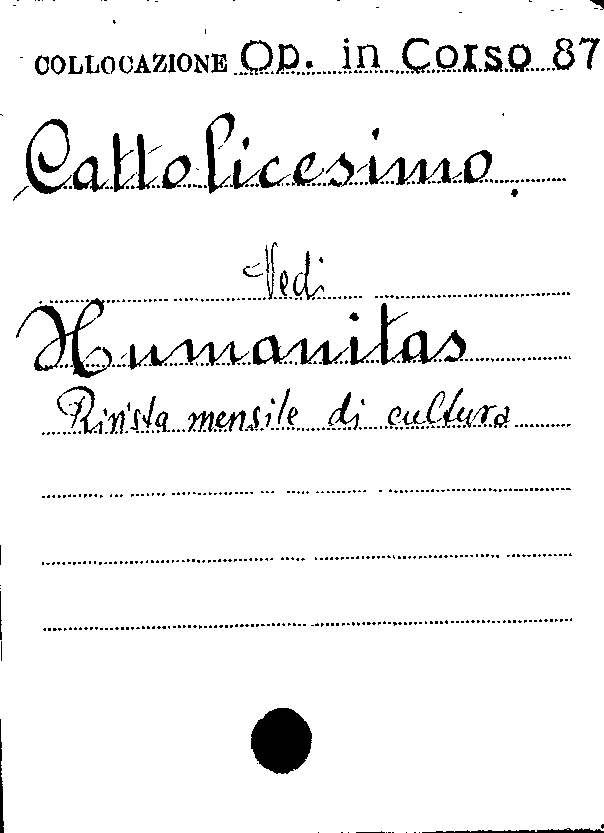 COLLOCAZIONE Op. in Corso 87
Cattolicesimo.
Vedi
Humanitas
Rivista mensile di cultura